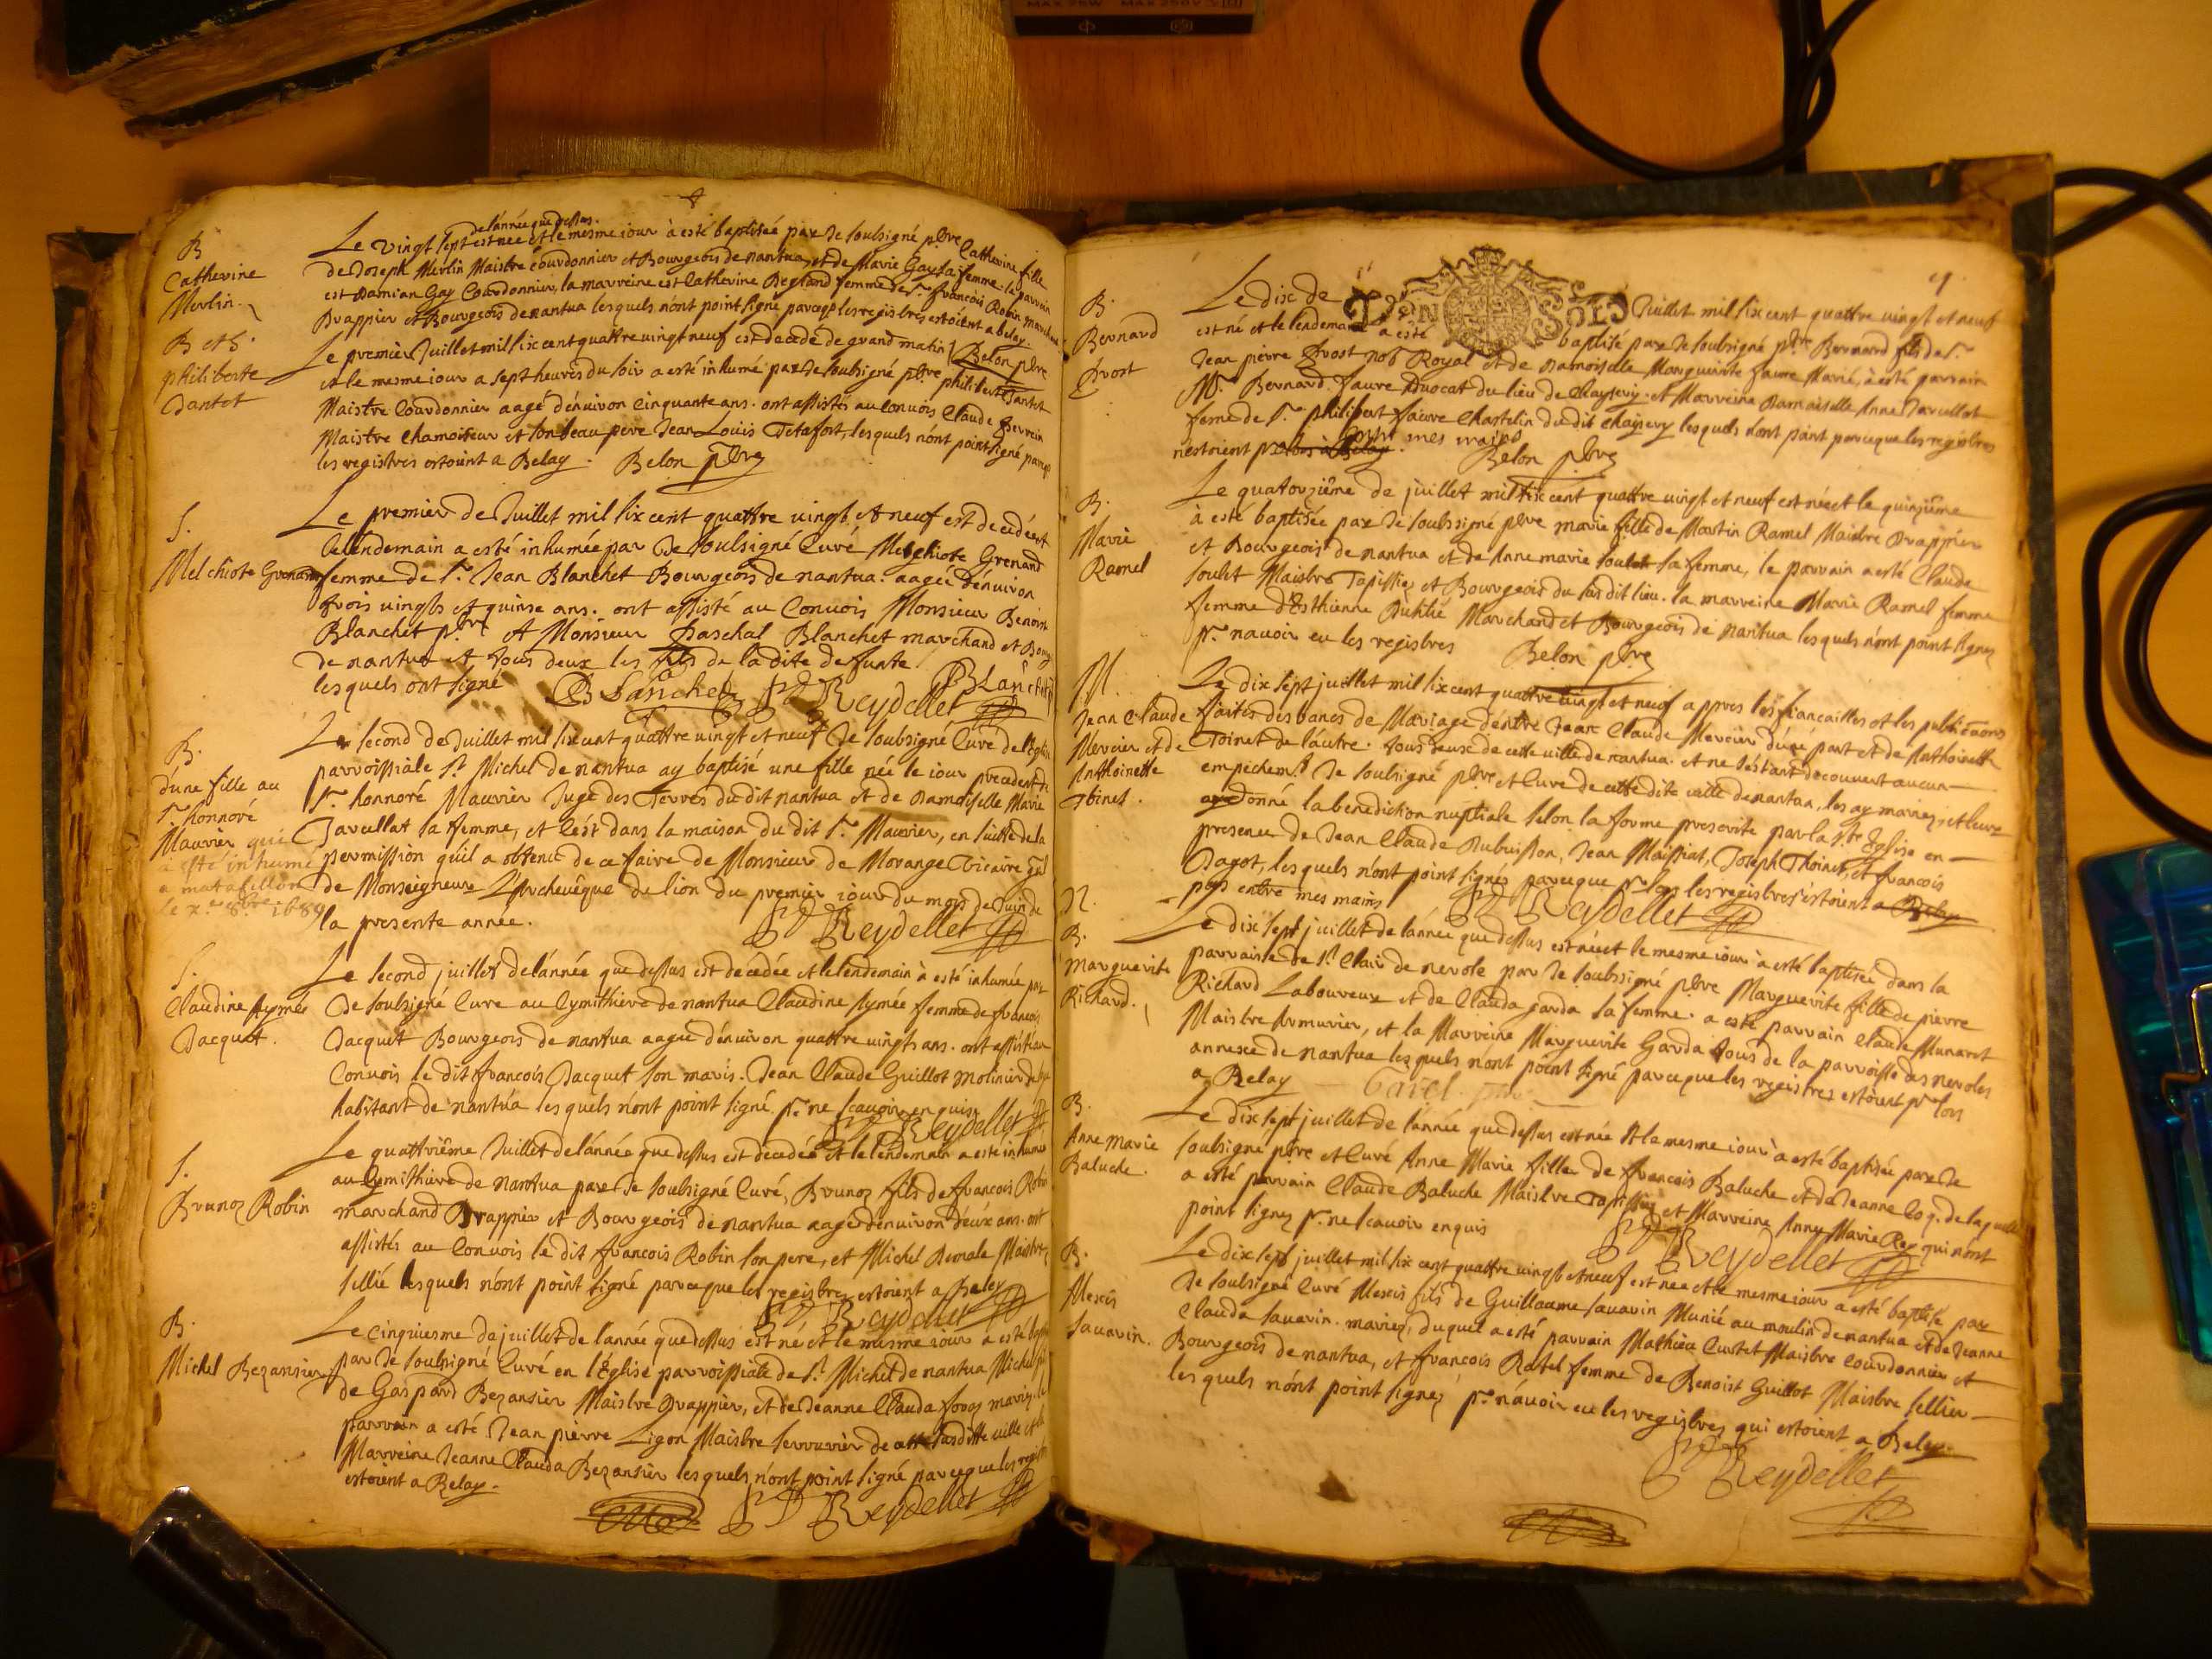 B
Catherine
Merlin.
de lánnée que dessus.
Le vingt sept est née et le mesme iour à esté baptisée par Je soubsigné pbre Catherine fille
de Joseph Merlin Maistre Courdonnier et Bourgeois de nantua, et de Marie Gay sa femme. le parrain
est Damian Gay Courdonnier, la marreine est Catherine femme de Sr. francois Robin marchand
Drappier et Bourgeois de nantua lesquels nónt point signé parceq les registres estoient a beley.
Belon pbre
B et S.
philiberte
Jantet
Le premier Juillet mil six cent quattre vingt neuf est decedé de grand matin
et le mesme iour a sept heures du soir a esté inhumé par Je soubsigné pbre philibert Jantet
Maistre Courdonnier aagé dénuiron Cinquante ans. ont assistés au Conuois Claude
Maistre Chamoiseur et son beau pere Jean Louis Tetafort, lesquels nónt point signé parceq
les registres estoient a Belay. Belon pbre
S.
Melchiote Grenand
Le premier de Juillet mil six cent quattre vingt et neuf est decedée et
le lendemain a esté inhumée par Je soubsigné Curé Melchiote Grenand
femme de Sr. Jean Blanchet Bourgeois de nantua. aagée dénuiron
trois vingts et quinse ans. ont assisté au Conuois Monsieur Benoist
Blanchet pbre et Monsieur Paschal Blanchet marchand et Bourg
de nantua et tous deux les fils de la dite defunte
lesquels ont signé B Blanchet Reydellet P Blanchet
B.
dúne fille au
Sr. honnoré
Mauvier qui
a esté inhumé
a matafellon
le x.e 8bre 1689
Le second de Juillet mil six cent quattre vingt et neuf Je soubsigné Curé de léglise
parroissiale St. Michel de nantua ay baptisé une fille née le iour precedent de
Sr. honnoré Mauvier Juge des Terres du dit nantua et de Damoiselle Marie
Jarcellat sa femme, et c'est dans la maison du dit Sr. Mauvier, en suitte de la
permission quíl a obtenu de ce faire de Monsieur de Morange Vicaire gnl
de Monseigneur L'Archeuêque de lion du premier iour du mois de Juin de
la presente année. Reydellet
S.
Claudine Aymée
Jacquet.
Le second juillet delánnée que dessus est decedée et le lendemain à esté inhumée par
Je soubsigné Cure au Cymithiere de nantua Claudine Aymée femme de francois
Jacquet Bourgeois de nantua aagée dénuiron quattre uingts ans. ont assisté au
Conuois le dit francois Jacquet son maris. Jean Claude Guillot molinier
habitant de nantua lesquels nónt point signé pr. ne scauoir enquis
Reydellet
S.
Brunoz Robin
Le quattriême Juillet delánnée que dessus est decedé et le lendemain a esté inhumé
au Cymithiere de nantua par Je soubsigné Curé, Brunoz fils de francois Robin
marchand Drappier et Bourgeois de nantua aagé dénuiron deux ans. ont
assistés au Conuois le dit francois Robin son pere, et Michel Maistre
sellié lesquels nónt point signé parceque les registres estoient a Beley
Reydellet
B.
Michel Bezansier
Le Cinquiesme de juillet de lánnée que dessus est né et le mesme iour a esté baptisé
par Je soubsigné Curé en l'Église parroissiale de St. Michel de nantua Michel fils
de Gaspard Bezansier Maistre Drappier, et de Jeanne Clauda mariez. le
parrain a esté Jean pierre Ligon Maistre serrurier de cette susditte uille et la
Marreine Jeanne Clauda Bezansier lesquels nónt point signé parceque les registres
estoient a Belay.
Reydellet
9.
DEN SOLS
B.
Bernard
Prost
Le dix de Juillet mil six cent quattre vingt et neuf
est né et le lendemain a esté baptisé par Je soubsigné pbre Bernard fils de Sr.
Jean pierre Prost Royal et de Damoiselle Marguerite faure Mariés, à esté parrain
Mr. Bernard faure Advocat du lieu de Chaysery. et Marreine Damoiselle Anne Jarcellat
feme de Sr. philibert faure Chastelin du dit Chaysery lesquels nónt point parceque les registres
nestoient mes mains Belon pbre
B.
Marie
Ramel
Le quatorziême de juillet mil six cent quattre uingt et neuf est née et le quinziême
à esté baptisée par Je soubsigné pbre marie fille de Martin Ramel Maistre Drappier
et Bourgeois de nantua et de Anne marie soulet sa femme, le parrain a esté Claude
soulet Maistre Tapissier et Bourgeois du susdit lieu. la marreine Marie Ramel femme
femme d'Esthienne Marchand et Bourgeois de nantua lesquels nónt point signez
pr. nauoir eu les registres Belon pbre
M.
Jean Claude
Mercier et de
Anthoinette
Thoinet.
Le dix sept juillet mil six cent quattre uingt et neuf appres les fiancailles et les publicãons
faites des bancs de Mariage dentre Jean Claude Mercier dúne part et de Anthoinette
Thoinet de láutre. tous deux de cette ville de nantua. et ne séstant decouuert aucun
empechemt. Je soubsigné pbre et Cure de cette dite uille de nantua, les ay mariez, et leur
ay donné la benediction nuptiale selon la forme prescrite par la Ste Eglise en
presence de Jean Claude Dubuisson, Jean Maissiat, Joseph Thoinet, et francois
Jagot, lesquels nónt point signés parceque pr. lors les registres éstoient a Beley
pas entre mes mains Reydellet
N.
B.
Marguerite
Richard.
Le dix sept juillet de lánnée que dessus est née et le mesme iour à esté baptisée dans la
parroisse de St. Clair de nerole par Je soubsigné pbre Marguerite fille de pierre
Richard Laboureux et de Clauda garda sa femme. a esté parrain Claude Munaret
Maistre Armurier, et la Marreine Marguerite Garda tous de la parroisse des neroles
annexée de nantua lesquels nont point signé parceque les registres estoient pr. lors
a Belay
B.
Anne marie
Baluche.
Le dix sept juillet de lánnée que dessus est née et le mesme iour à esté baptisée par Je
soubsigné pbre et Curé Anne Marie fille de francois Baluche et de Jeanne de laquelle
a esté parrain Claude Baluche Maistre Tapissier et Marreine Anne Marie Rey qui nónt
point signez pr. ne scauoir enquis Reydellet
B.
Alexis
Sauarin.
Le dix sept juillet mil six cent quattre vingt et neuf est née et le mesme iour a esté baptisé par
Je soubsigné Curé Alexis fils de Guillaume sauarin Munié au moulin de nantua et de Jeanne
Clauda sauarin. mariez, duquel a esté parrain Mathieu Curtet Maistre Courdonnier et
Bourgeois de nantua, et francois Ratel femme de Benoist Guillot Maistre sellier
lesquels nónt point signez pr. náuoir eu les registres qui estoient a Beley.
Reydellet